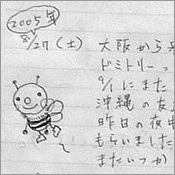 2005年
8/27(土) 大阪から
ドミトリーっ
9/1にまた
沖縄の友
昨日の夜中
もらいました
またいつか